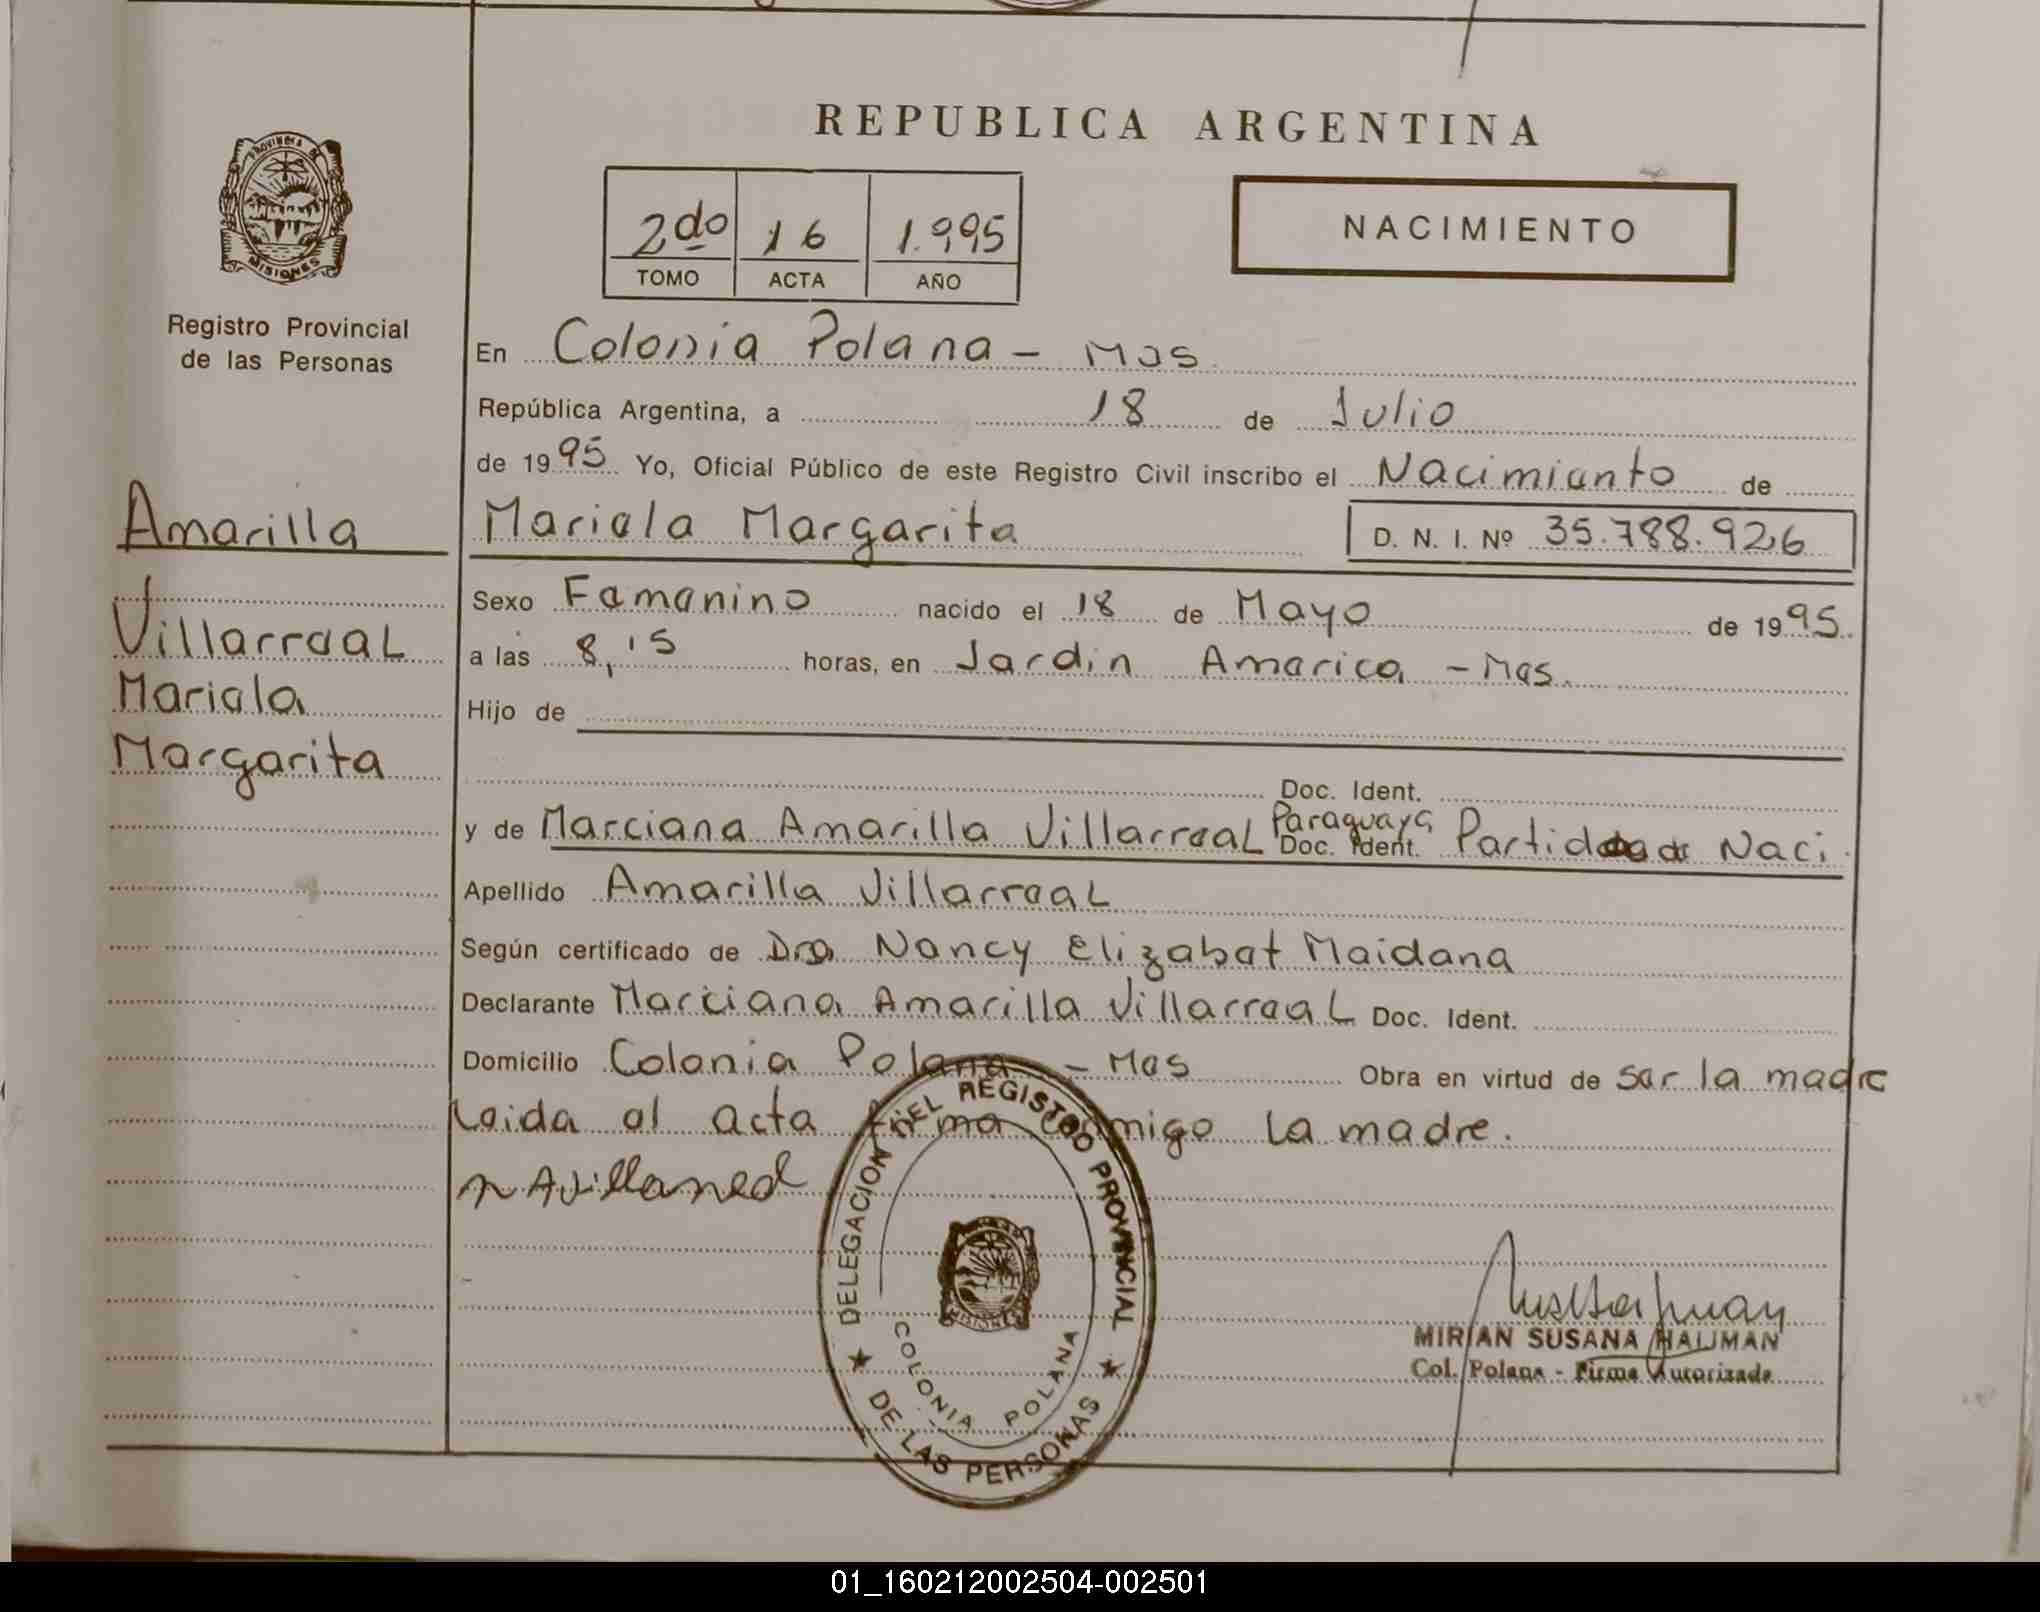 REPUBLICA ARGENTINA
PROVINCIA DE
MISIONES
Registro Provincial
de las Personas
2do 16 1.995
TOMO ACTA AÑO
NACIMIENTO
En Colonia Polana - Mns.
República Argentina, a 18 de Julio
de 1995 Yo, Oficial Público de este Registro Civil inscribo el Nacimiento de
Mariela Margarita D. N. I. Nº 35.788.926
Amarilla
Villarreal
Mariela
Margarita
Sexo Femenino nacido el 18 de Mayo de 1995.
a las 8,15 horas, en Jardin America - Mns.
Hijo de
Doc. Ident.
y de Marciana Amarilla Villarreal Paraguaya Doc. Ident. Partida de Naci.
Apellido Amarilla Villarreal
Según certificado de Dra Nancy Elizabet Maidana
Declarante Marciana Amarilla Villarreal Doc. Ident.
Domicilio Colonia Polana - Mns Obra en virtud de ser la madre
Leida el acta firma conmigo la madre.
DELEGACION DEL REGISTRO PROVINCIAL
DE LAS PERSONAS
COLONIA POLANA
MISIONES
MIRIAN SUSANA HAUMAN
Col. Polana - Firma Autorizada
01_160212002504-002501